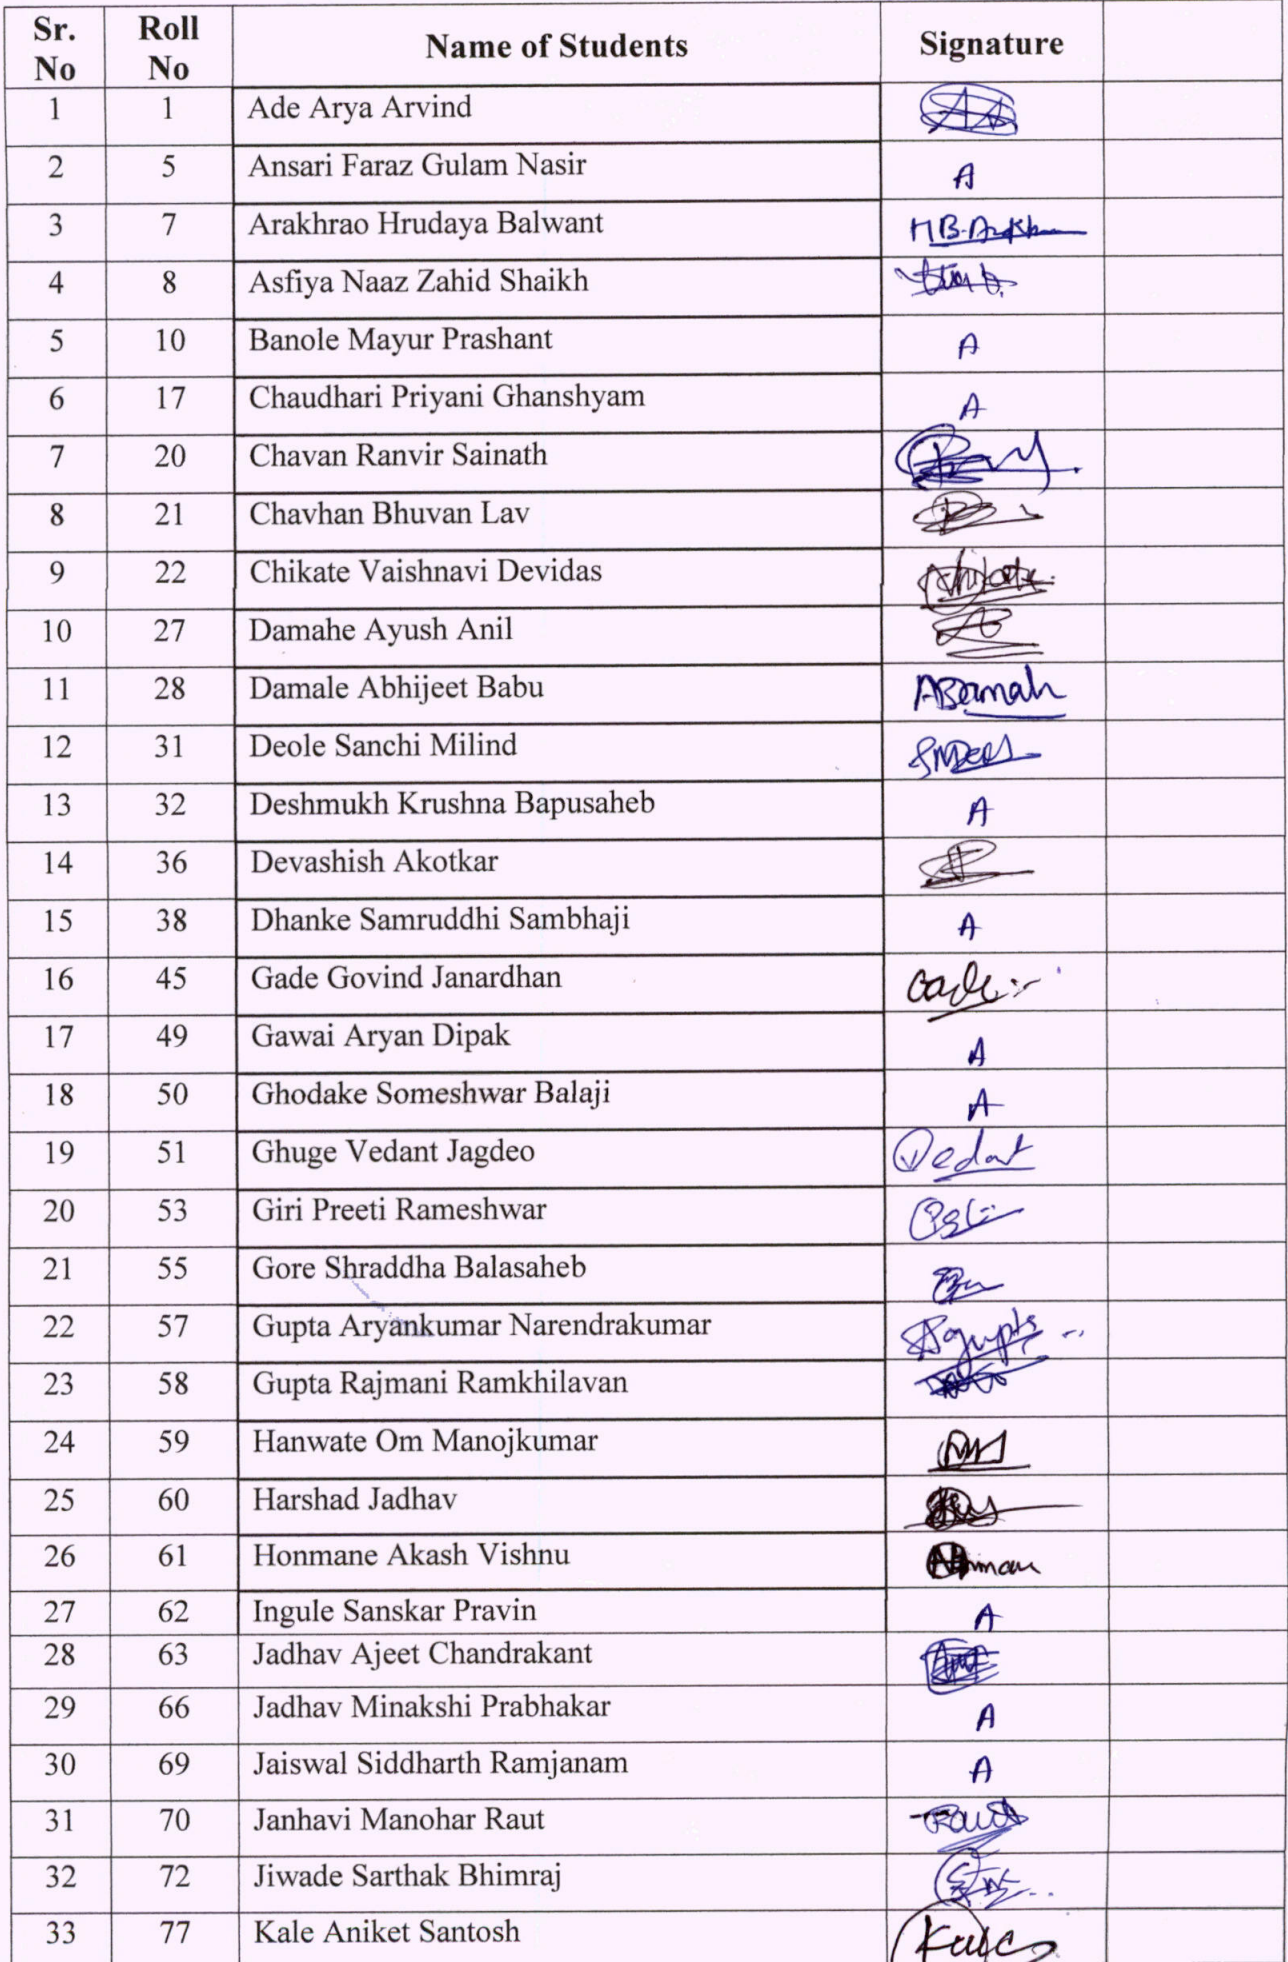 Sr. No Roll No Name of Students Signature
1 1 Ade Arya Arvind
2 5 Ansari Faraz Gulam Nasir A
3 7 Arakhrao Hrudaya Balwant
4 8 Asfiya Naaz Zahid Shaikh
5 10 Banole Mayur Prashant A
6 17 Chaudhari Priyani Ghanshyam A
7 20 Chavan Ranvir Sainath
8 21 Chavhan Bhuvan Lav
9 22 Chikate Vaishnavi Devidas
10 27 Damahe Ayush Anil
11 28 Damale Abhijeet Babu
12 31 Deole Sanchi Milind
13 32 Deshmukh Krushna Bapusaheb A
14 36 Devashish Akotkar
15 38 Dhanke Samruddhi Sambhaji A
16 45 Gade Govind Janardhan
17 49 Gawai Aryan Dipak A
18 50 Ghodake Someshwar Balaji A
19 51 Ghuge Vedant Jagdeo Vedant
20 53 Giri Preeti Rameshwar
21 55 Gore Shraddha Balasaheb
22 57 Gupta Aryankumar Narendrakumar
23 58 Gupta Rajmani Ramkhilavan
24 59 Hanwate Om Manojkumar
25 60 Harshad Jadhav
26 61 Honmane Akash Vishnu
27 62 Ingule Sanskar Pravin A
28 63 Jadhav Ajeet Chandrakant
29 66 Jadhav Minakshi Prabhakar A
30 69 Jaiswal Siddharth Ramjanam A
31 70 Janhavi Manohar Raut Raut
32 72 Jiwade Sarthak Bhimraj
33 77 Kale Aniket Santosh